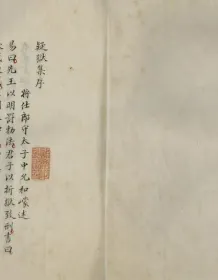 疑獄集序
將仕郎守太子中允和㠓述
易曰先王以明罰勑法君子以折獄致刑書曰